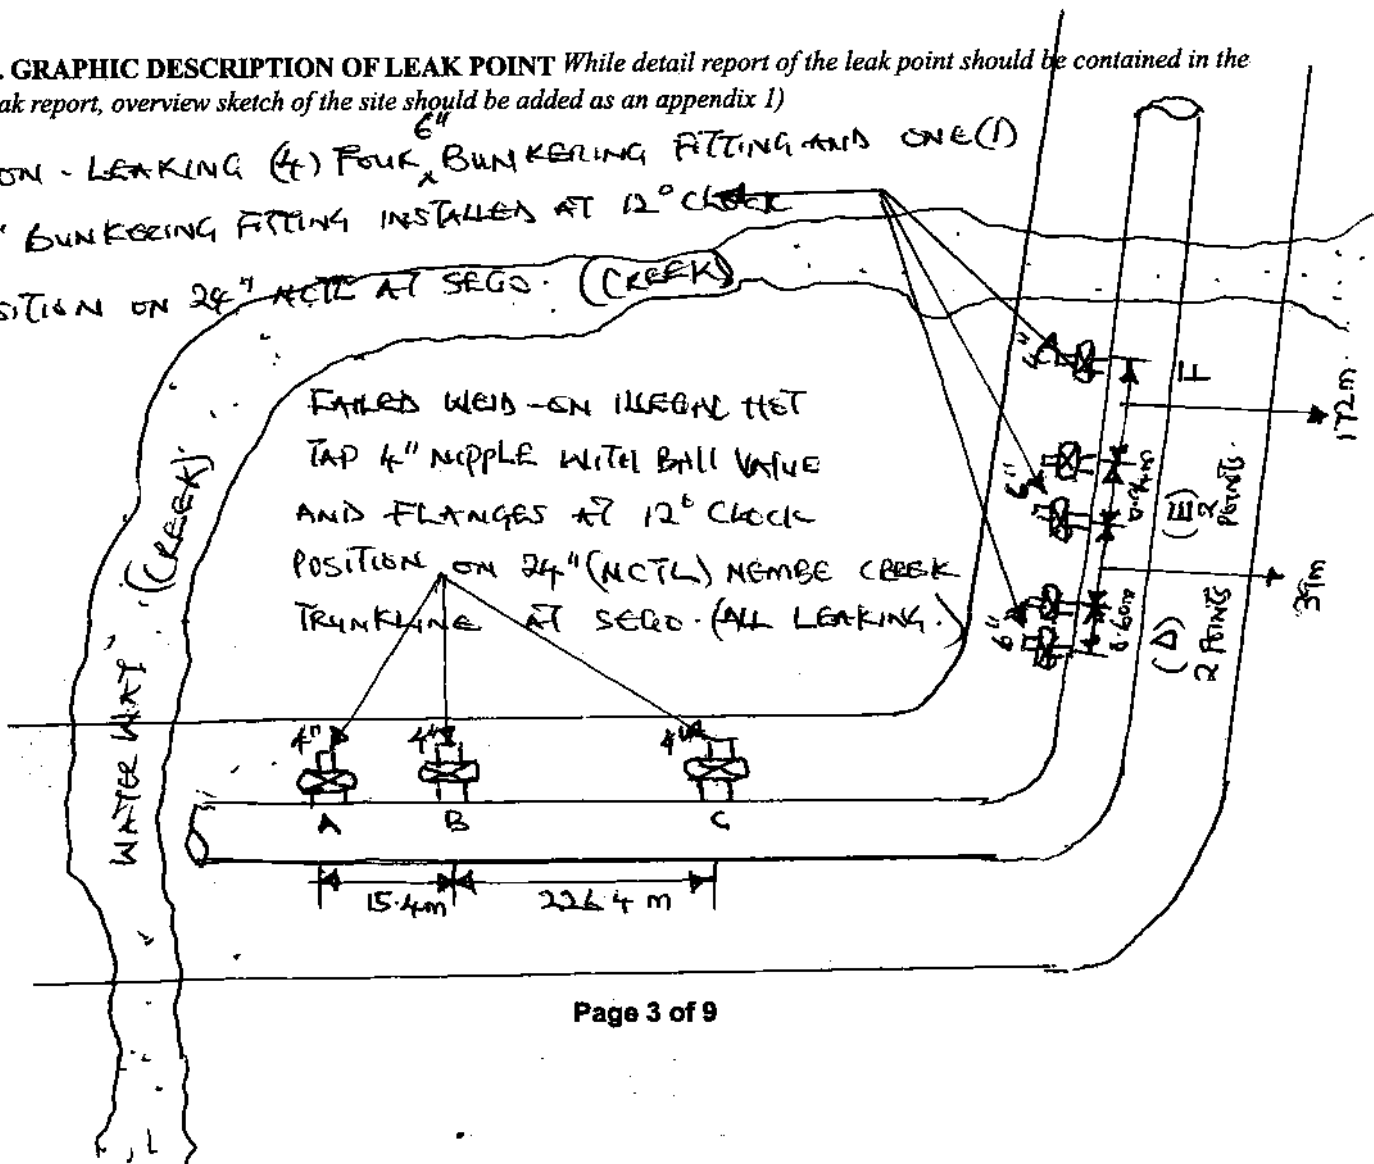 . GRAPHIC DESCRIPTION OF LEAK POINT While detail report of the leak point should be contained in the
ak report, overview sketch of the site should be added as an appendix 1)
6"
ON - LEAKING (4) FOUR BUNKERING FITTING AND ONE (1)
" BUNKERING FITTING INSTALLED AT 12° CLOCK
SITION ON 24" NCTL AT SEGO.
(CREEK)
FAILED WELD-ON ILLEGAL HOT
TAP 4" NIPPLE WITH BALL VALVE
AND FLANGES AT 12° CLOCK
POSITION ON 24" (NCTL) NEMBE CREEK
TRUNKLINE AT SEGO. (ALL LEAKING.)
WATER WAY (CREEK)
4"
F
172m
6"
(E) 2 POINTS
39m
6"
(D) 2 POINTS
4" 4" 4"
A B C
15.4m 226.4 m
Page 3 of 9